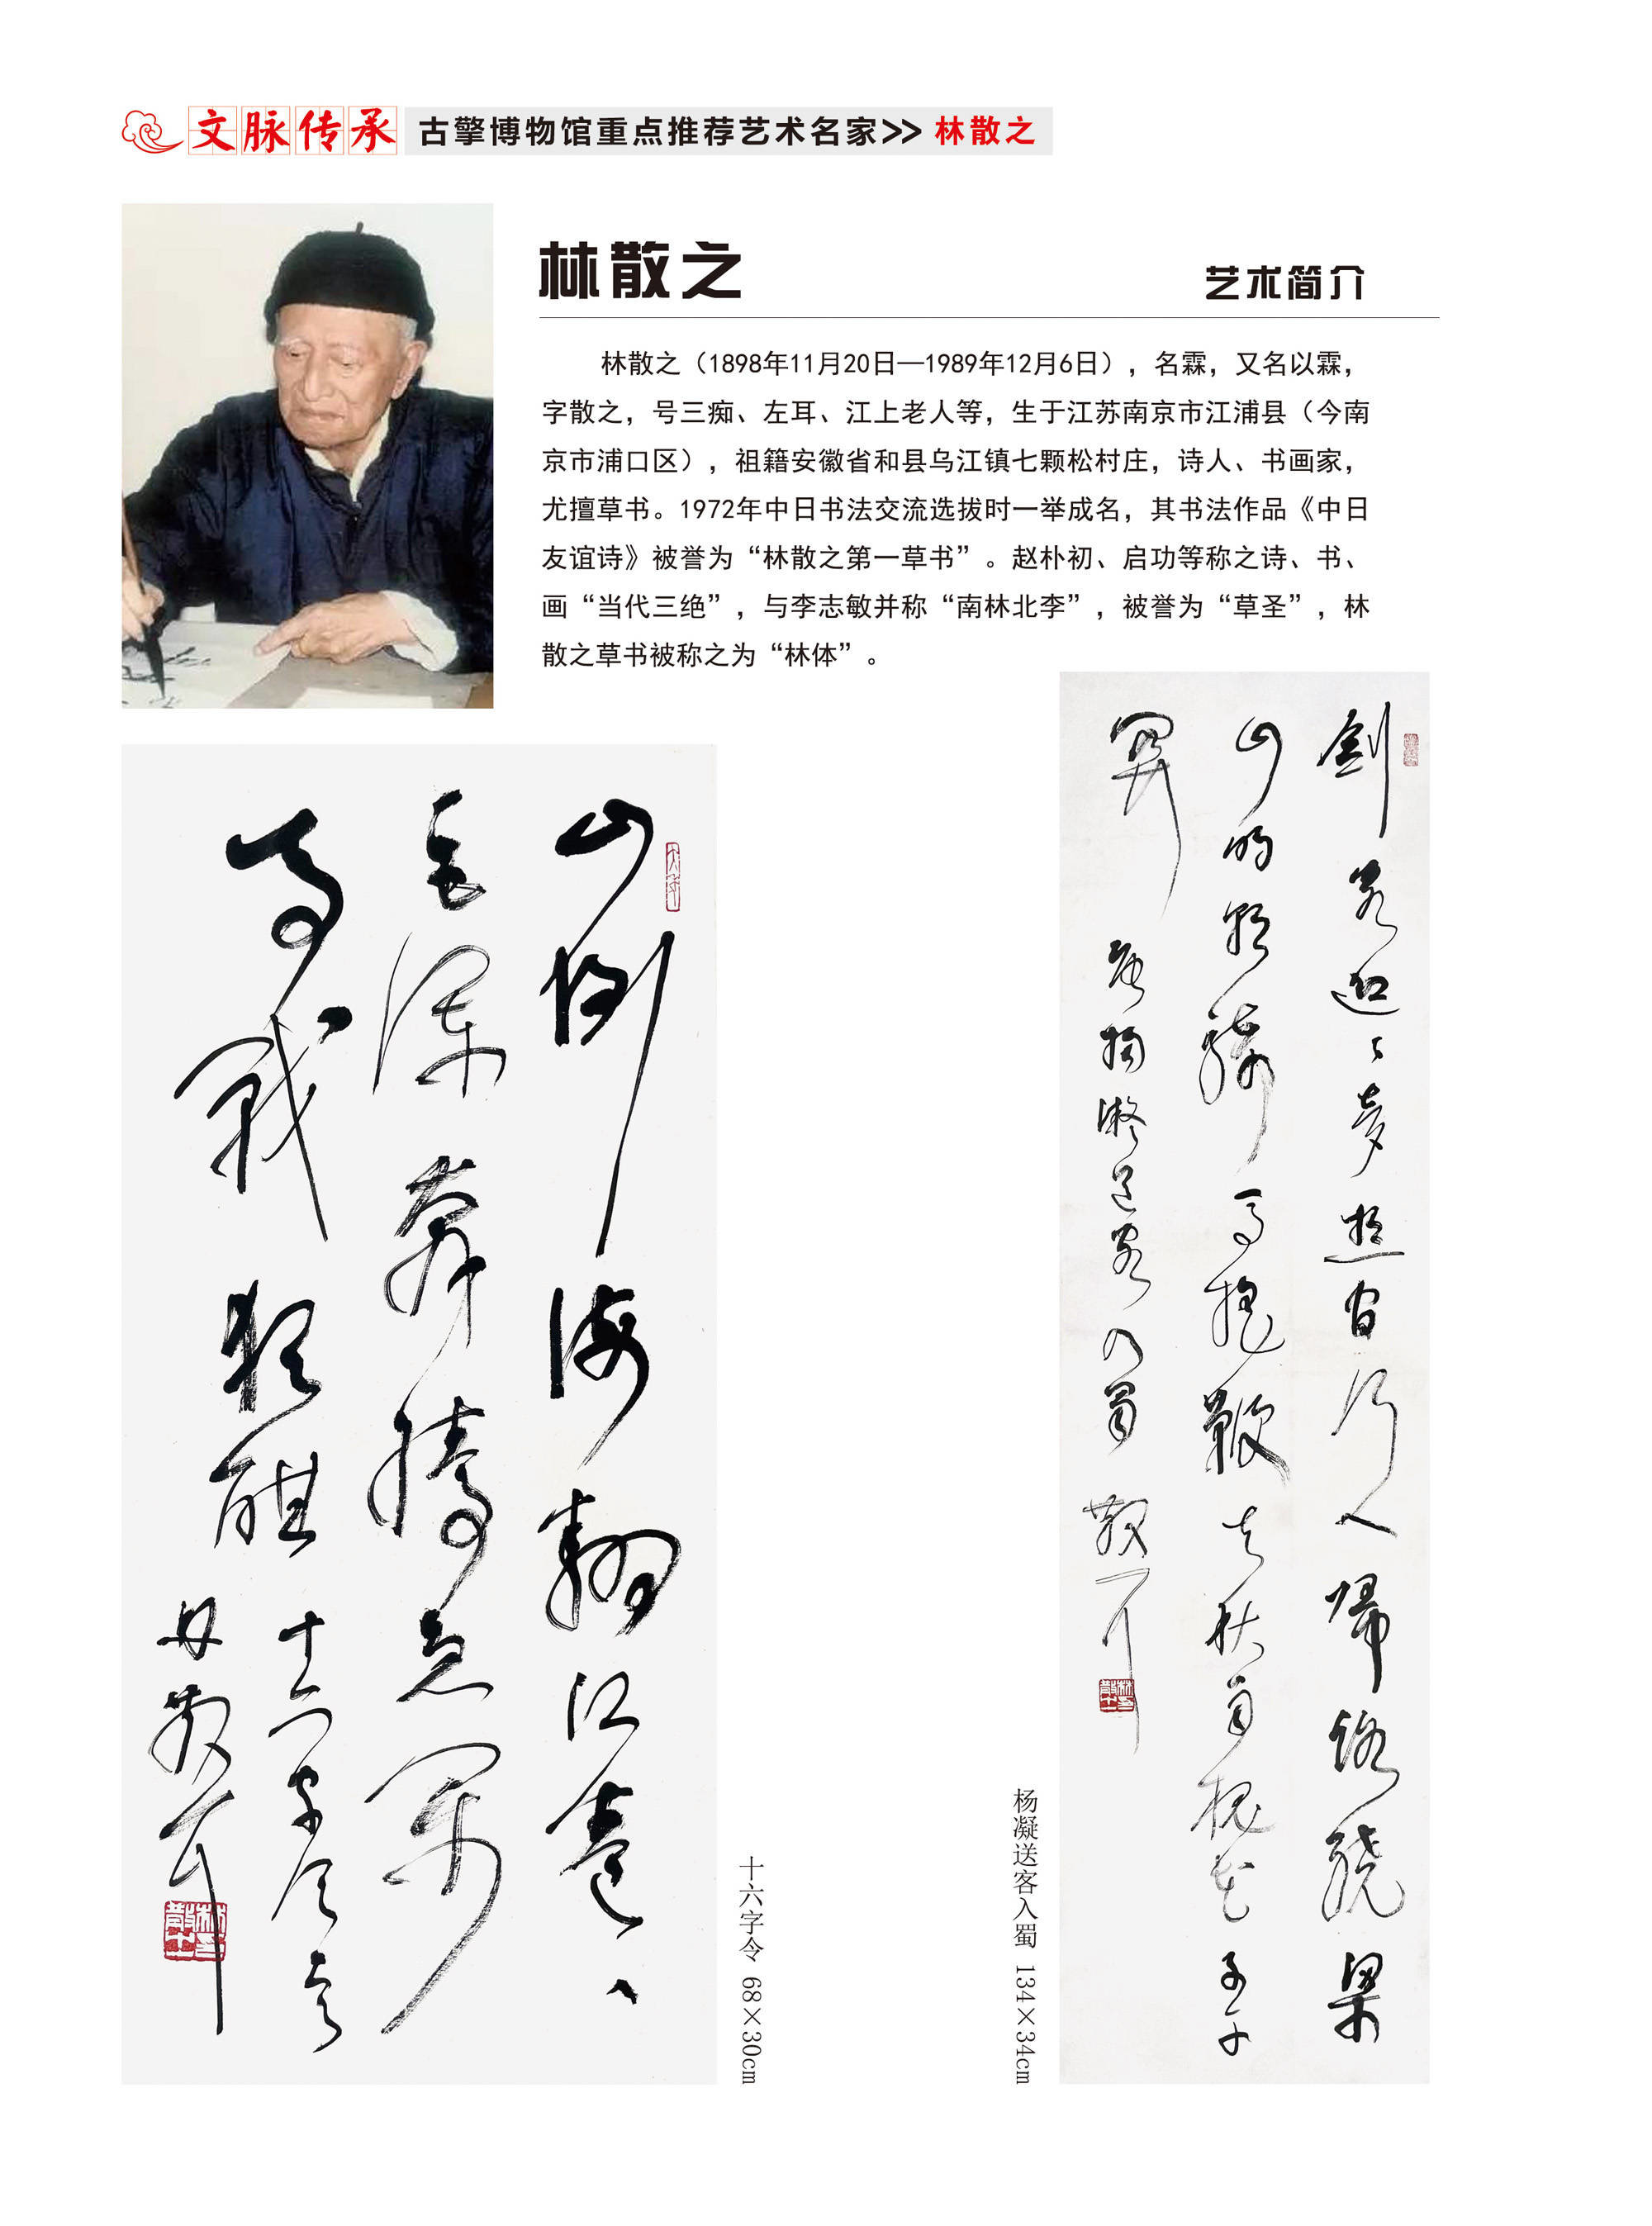 文脉传承 古擎博物馆重点推荐艺术名家>> 林散之
林散之
艺术简介
林散之（1898年11月20日—1989年12月6日），名霖，又名以霖，
字散之，号三痴、左耳、江上老人等，生于江苏南京市江浦县（今南
京市浦口区），祖籍安徽省和县乌江镇七颗松村庄，诗人、书画家，
尤擅草书。1972年中日书法交流选拔时一举成名，其书法作品《中日
友谊诗》被誉为“林散之第一草书”。赵朴初、启功等称之诗、书、
画“当代三绝”，与李志敏并称“南林北李”，被誉为“草圣”，林
散之草书被称之为“林体”。
劍閣迢迢夢想間行人歸路繞梁
山明朝騎馬搖鞭去秋雨槐花子午
關 唐楊凝送客入蜀 散耳
杨凝送客入蜀 134×34cm
山倒海翻江卷
巨瀾奔騰急萬
馬戰猶酣
十六字令
散耳
十六字令 68×30cm